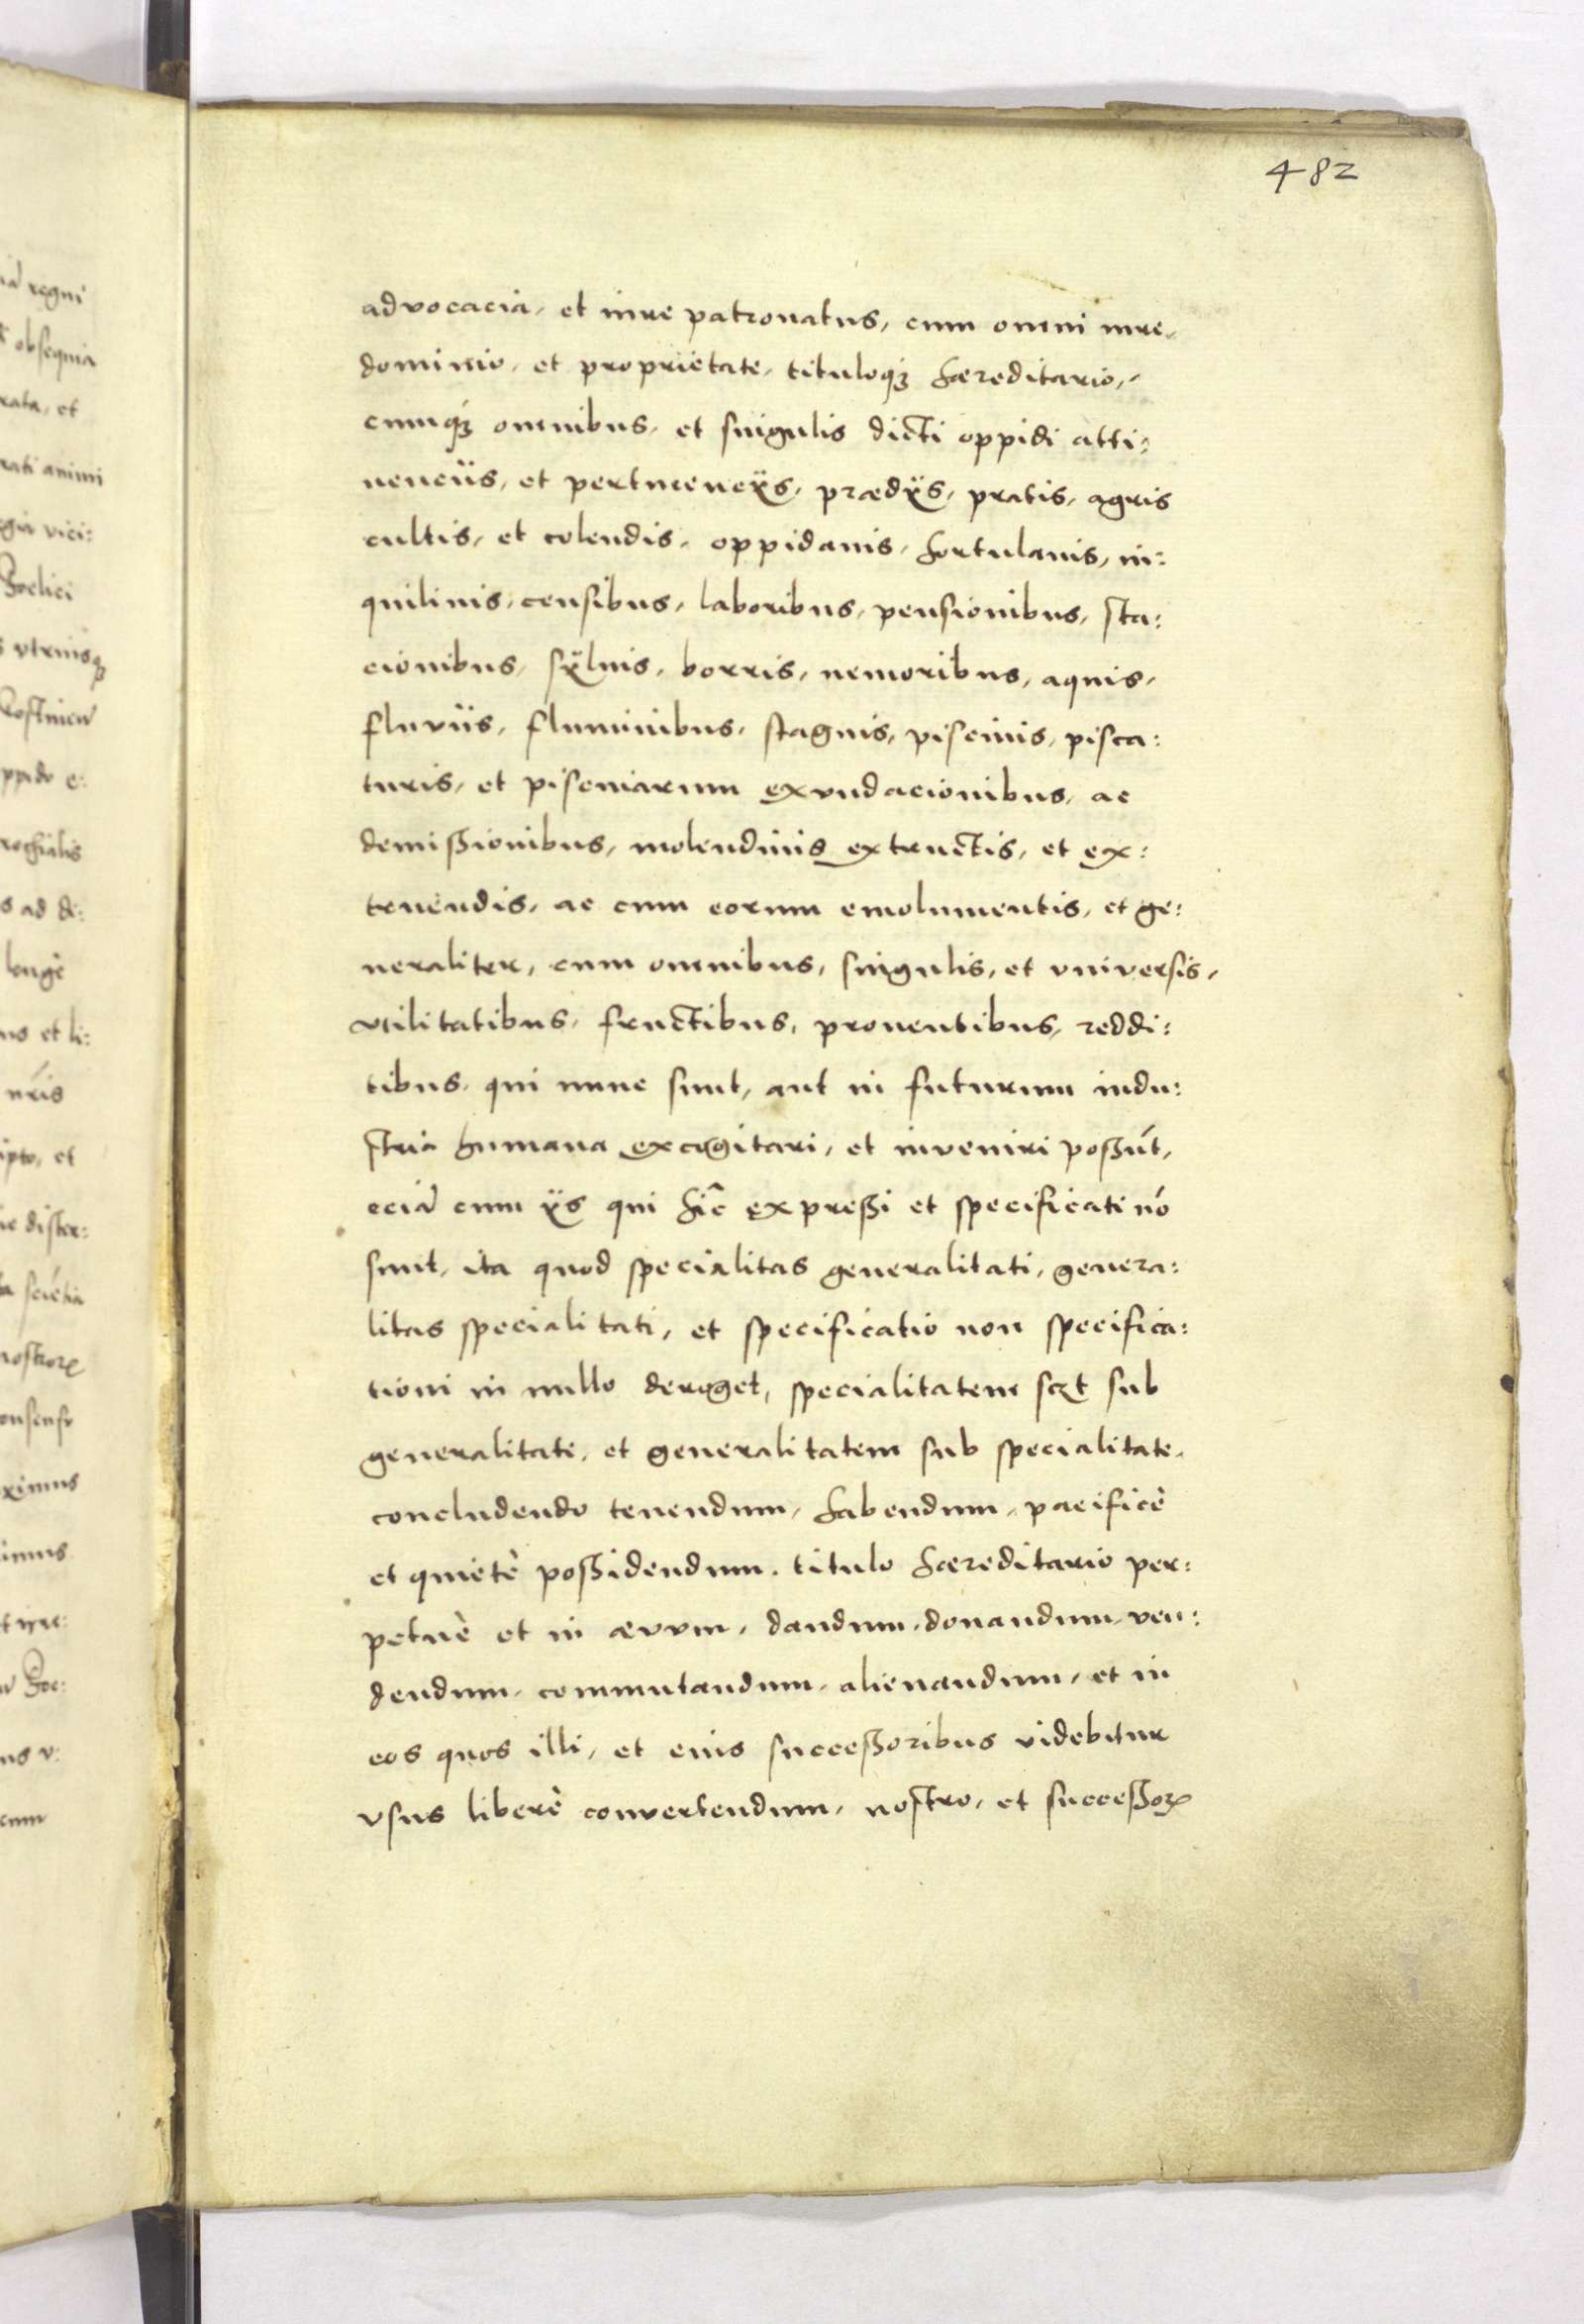 482
advocacia, et iure patronatus, cum omni iure,
dominio, et proprietate, tituloq3 hæreditario,
cumq3 omnibus, et singulis dicti oppidi atti:
nenciis, et pertinencÿs, prædÿs, pratis, agris
cultis, et colendis, oppidanis, hortulanis, in:
quilinis, censibus, laboribus, pensionibus, sta:
cionibus, sÿluis, borris, nemoribus, aquis,
fluviis, fluminibus, stagnis, piscinis, pisca:
turis, et piscinarum exvndacionibus, ac
demissionibus, molendinis extructis, et ex:
truendis, ac cum eorum emolumentis, et ge:
neraliter, cum omnibus, singulis, et vniversis,
vtilitatibus, fructibus, prouentibus, reddi:
tibus, qui nunc sunt, aut in futurum indu:
stria humana excogitari, et inveniri possūt,
eciā cum ÿs qui hîc expressi et specificati nō
sunt, ita quod specialitas generalitati, genera:
litas specialitati, et specificatio non specifica:
tioni in nullo deroget, specialitatem scꝫt sub
generalitate, et generalitatem sub specialitate,
concludendo tenendum, habendum, pacificè
et quietè possidendum, titulo hæreditario per:
petuè et in ævvm, dandum, donandum, ven:
dendum, commutandum, alienandum, et in
eos quos illi, et eius successoribus videbitur
vsus liberè convertendum, nostro, et successoꝝ